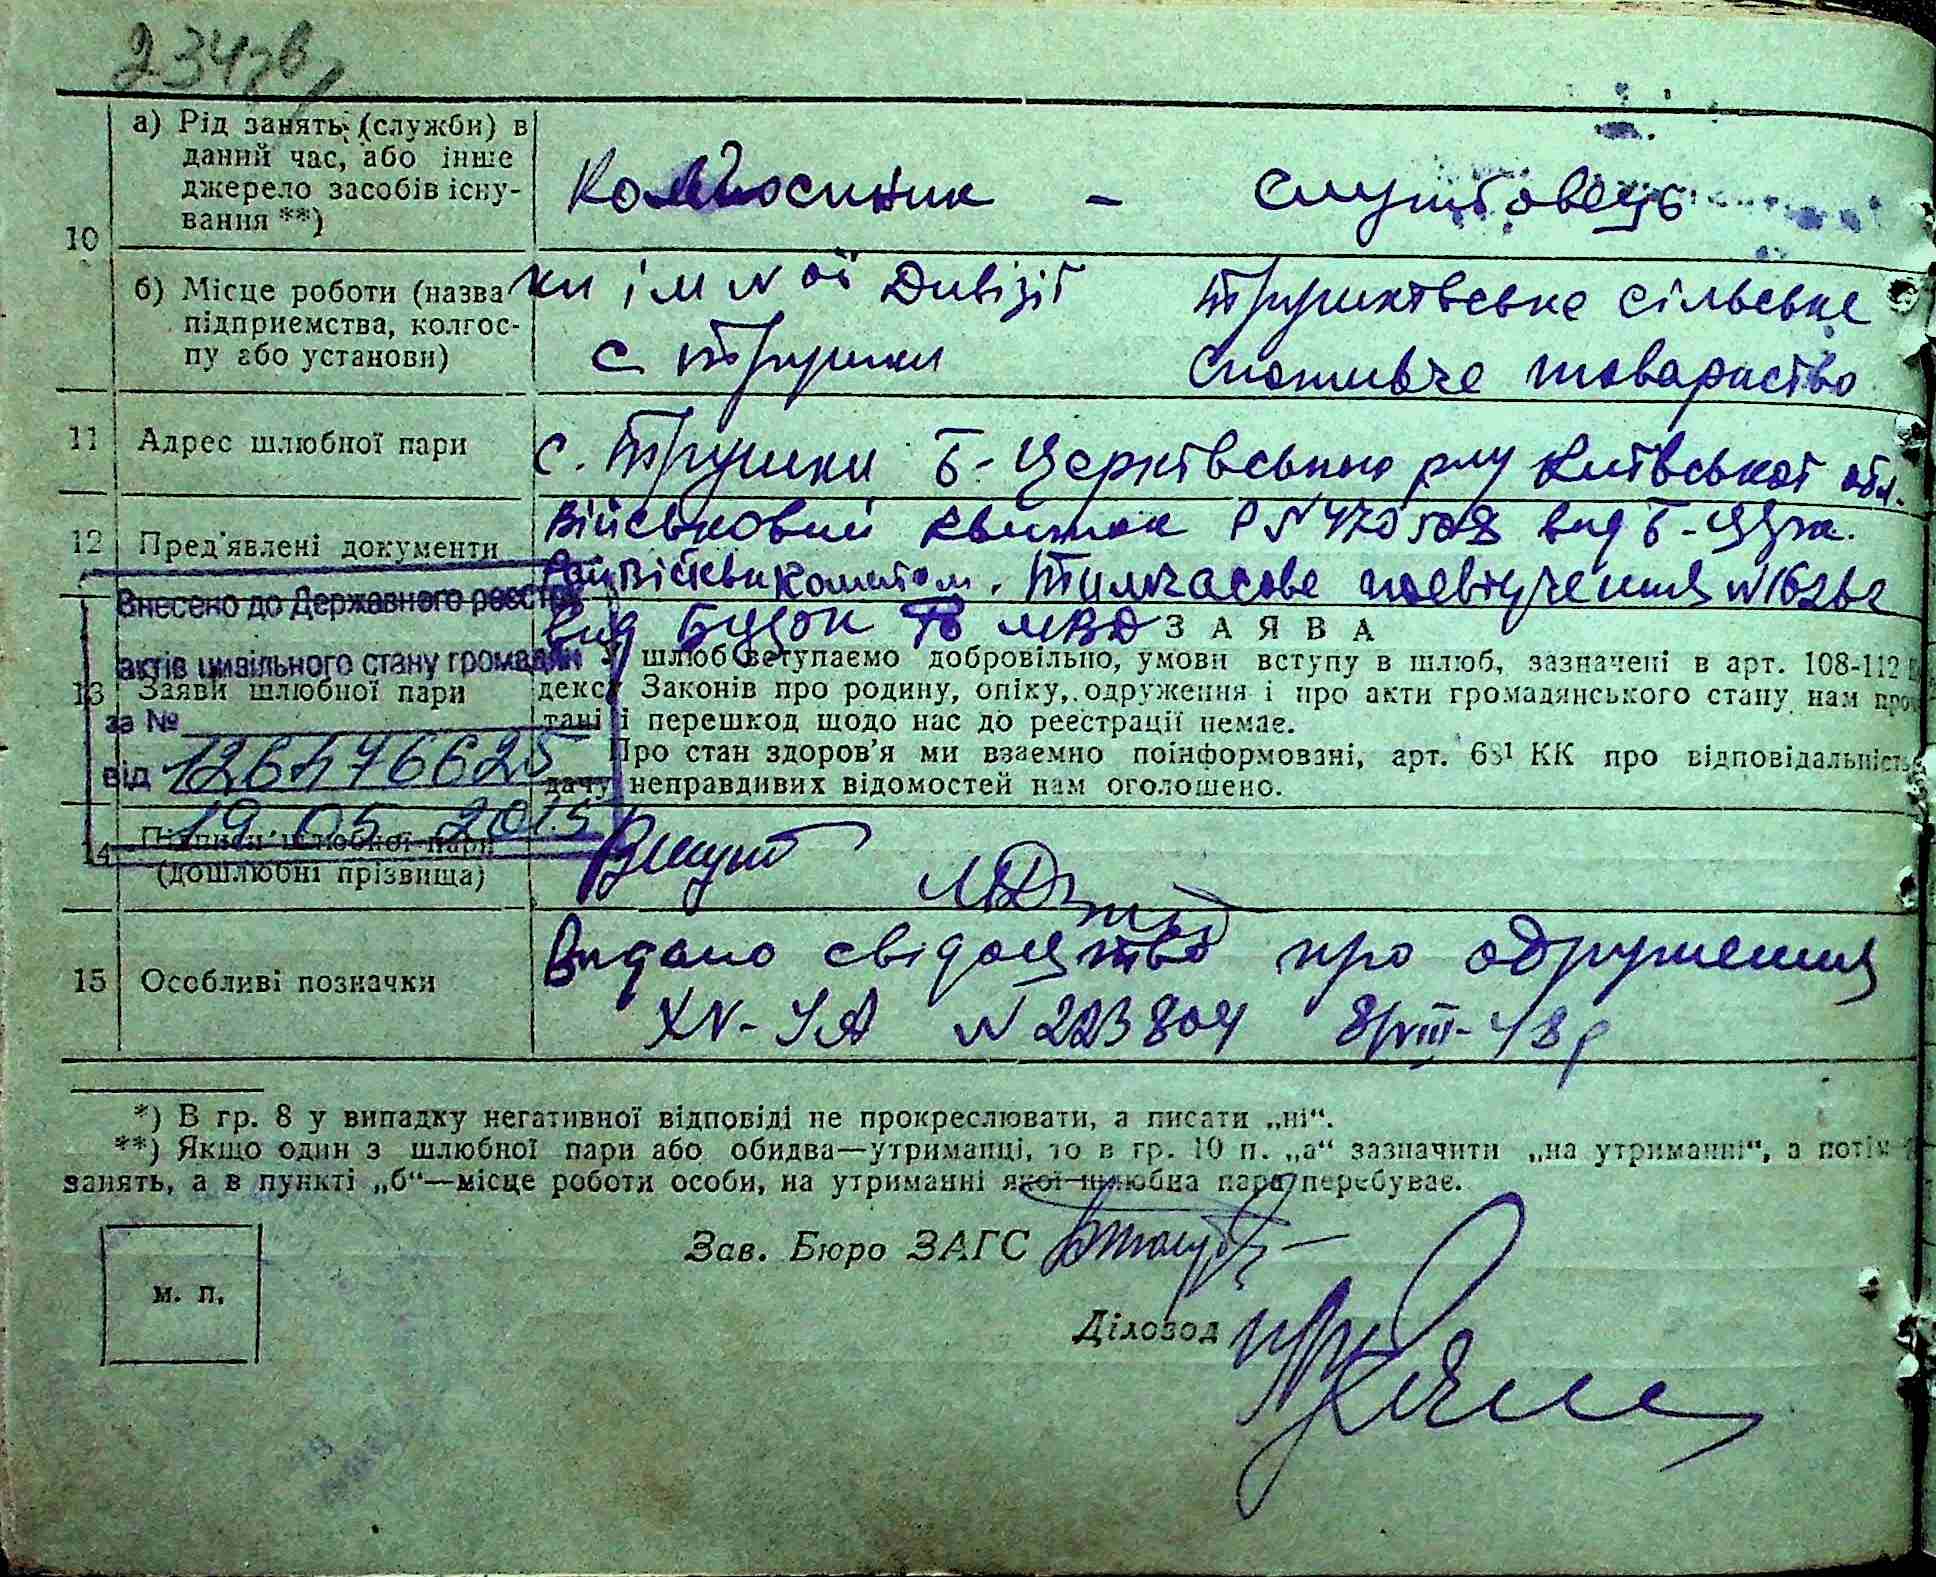 а) Рід занять (служби) в
даний час, або інше
джерело засобів існу-
вання **)
Колгоспник - службовець
10
б) Місце роботи (назва
підприємства, колгос-
пу або установи)
ки ім N ої Дивізії
с Трушки
Трушківське сільське
споживче товариство
11 Адрес шлюбної пари
с. Трушки Б-Церківського р-ну Київської обл.
12 Пред'явлені документи
Військовий квиток вид Б-Ц
Райвійськоматом. Тимчасове посвідчення
вид МВД
Внесено до Державного реєстру
актів цивільного стану громадян
за №
126476625
від
19 05 2015
13 Заяви шлюбної пари
ЗАЯВА
У шлюб вступаємо добровільно, умови вступу в шлюб, зазначені в арт. 108-112
декс Законів про родину, опіку, одруження і про акти громадянського стану нам про
тані і перешкод щодо нас до реєстрації немає.
Про стан здоров'я ми взаємно поінформовані, арт. 68¹ КК про відповідальність
дачу неправдивих відомостей нам оголошено.
14 Підписи шлюбної пари
(дошлюбні прізвища)
15 Особливі позначки
Видано свідоцтво про одруження
N 223804 8/VIII-48р
*) В гр. 8 у випадку негативної відповіді не прокреслювати, а писати „ні“.
**) Якщо один з шлюбної пари або обидва—утриманці, то в гр. 10 п. „а“ зазначити „на утриманні“, а потім
занять, а в пункті „б“—місце роботи особи, на утриманні якої шлюбна пара перебуває.
Зав. Бюро ЗАГС
м. п.
Діловод